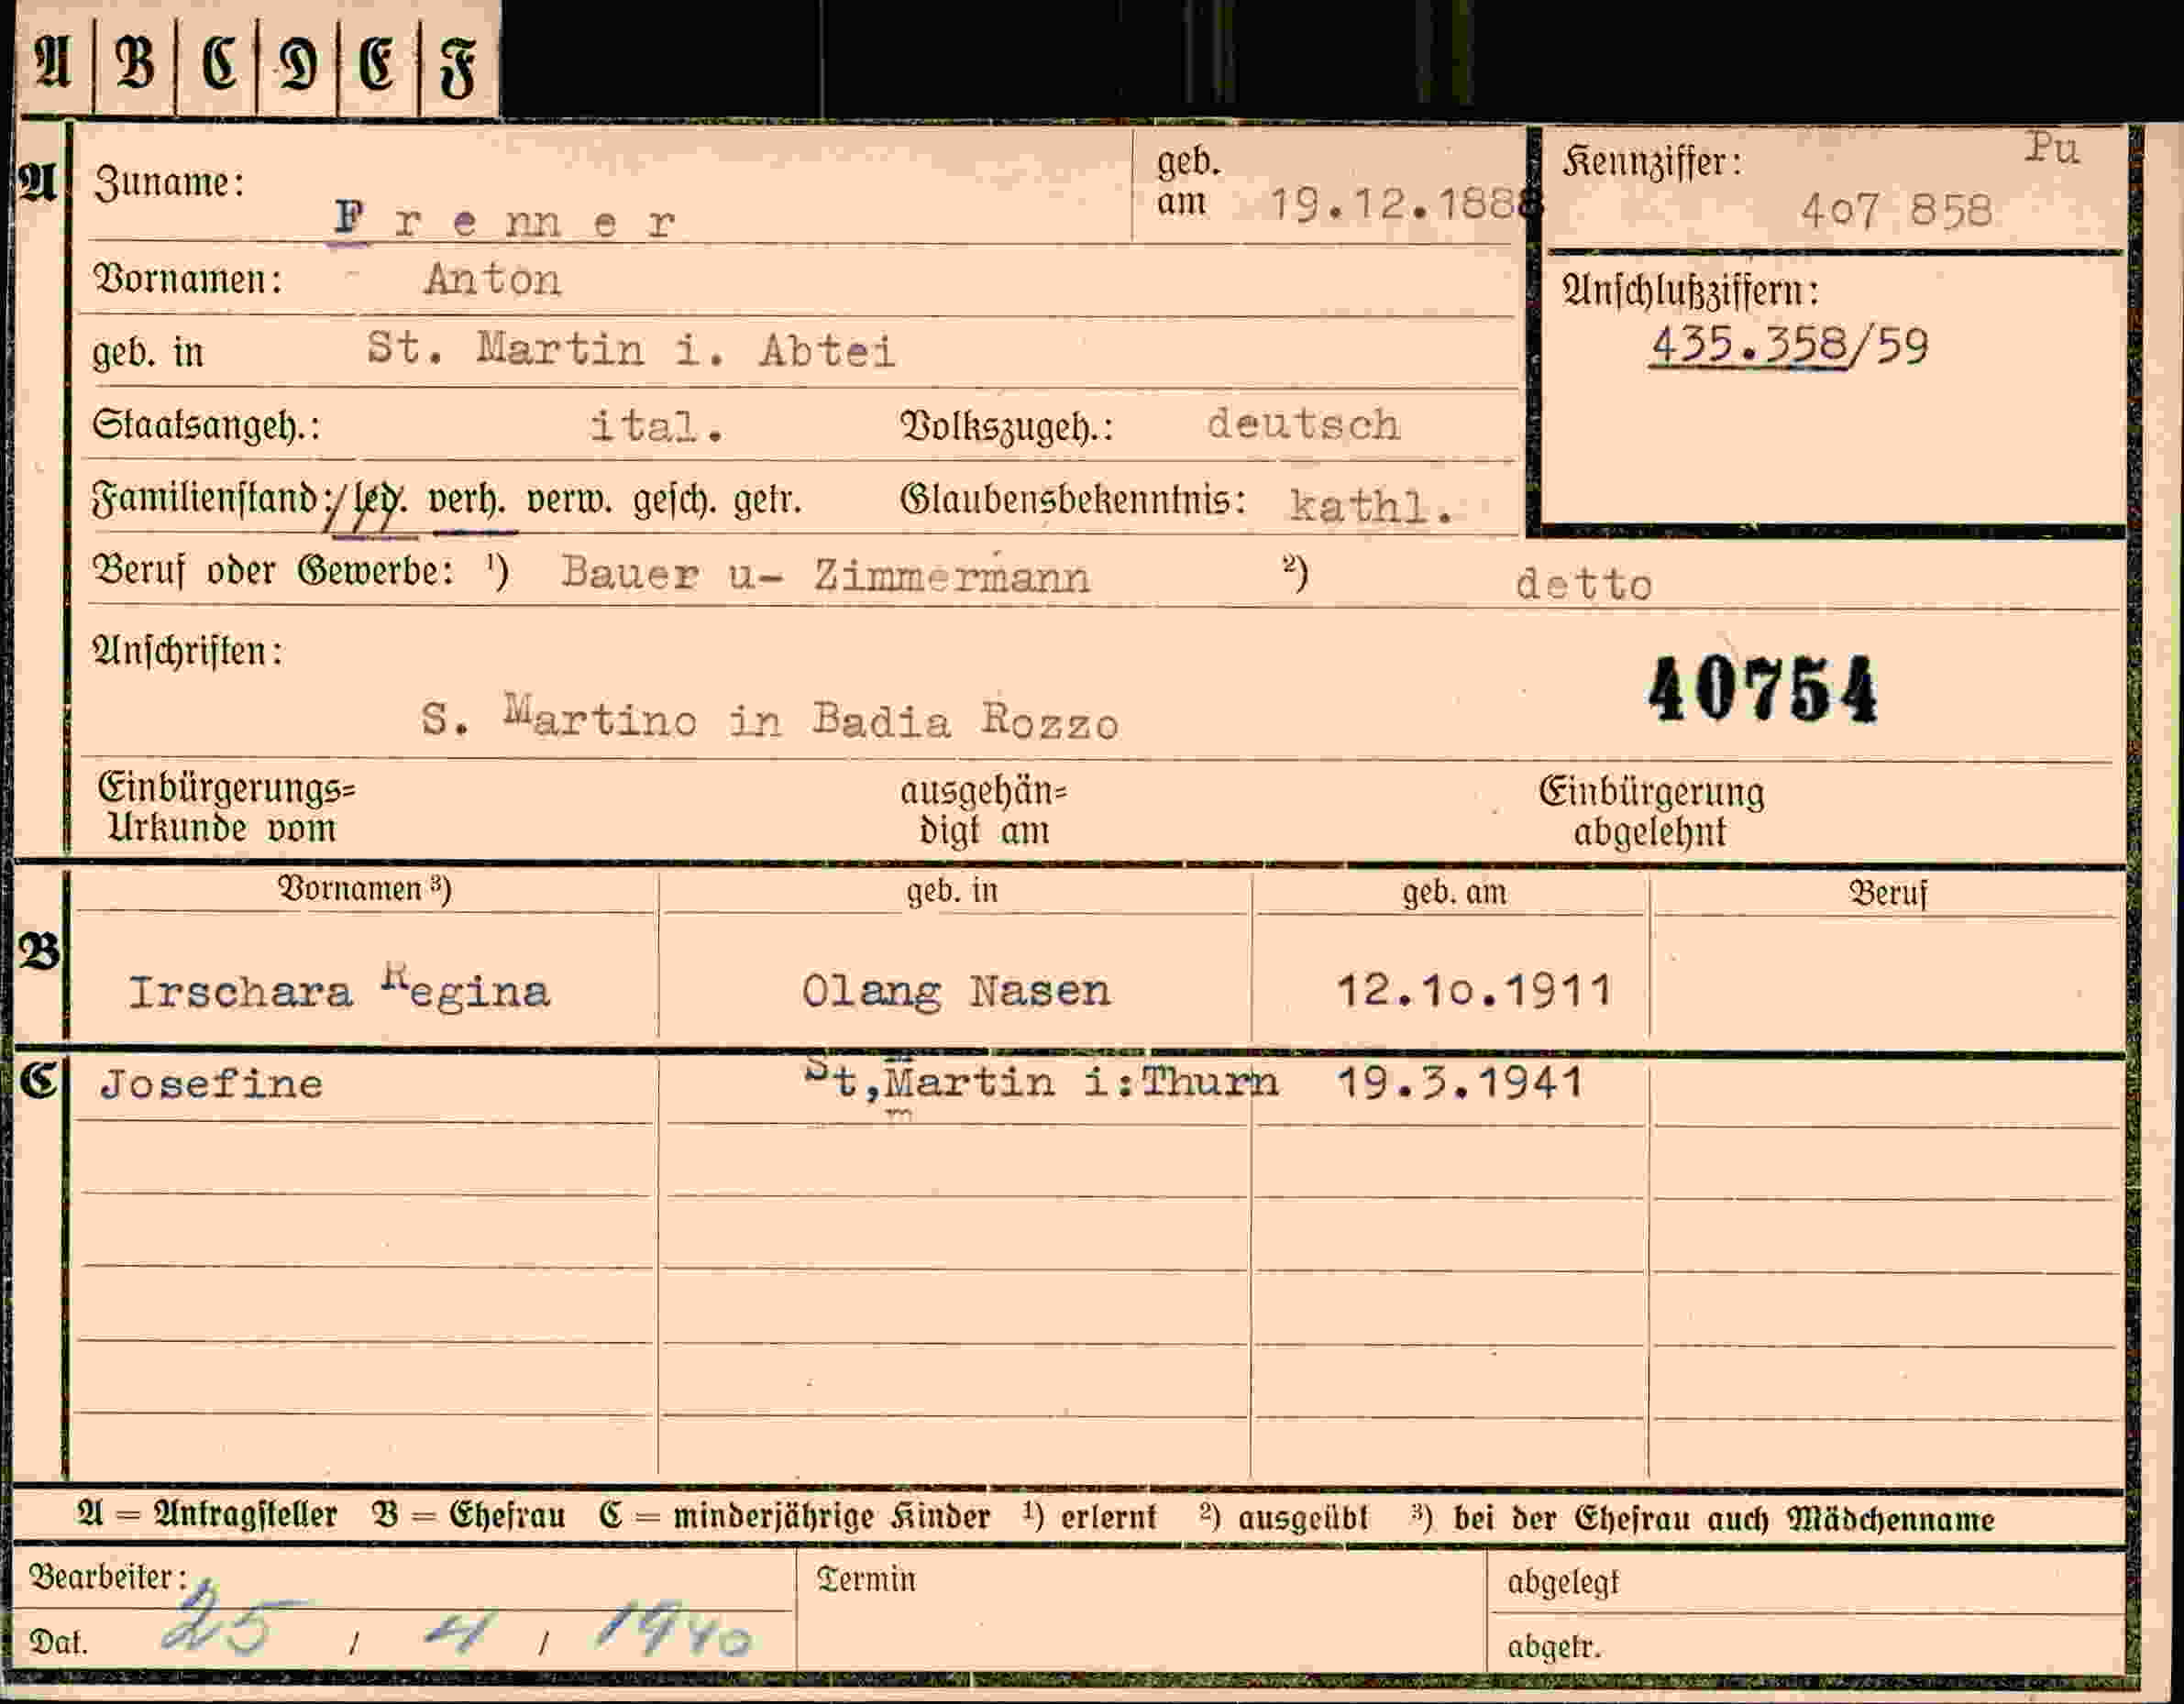 A B C D E F
A Zuname: Frenner geb. am 19.12.1888 Kennziffer: Pu 407 858
Vornamen: Anton
Anschlußziffern: 435.358/59
geb. in St. Martin i. Abtei
Staatsangeh.: ital. Volkszugeh.: deutsch
Familienstand: led. verh. verw. gesch. getr. Glaubensbekenntnis: kathl.
Beruf oder Gewerbe: ¹) Bauer u- Zimmermann ²) detto
Anschriften: 40754
S. Martino in Badia Rozzo
Einbürgerungs= Urkunde vom ausgehän= digt am Einbürgerung abgelehnt
Vornamen ³) geb. in geb. am Beruf
B Irschara Regina Olang Nasen 12.10.1911
C Josefine St,Martin i:Thurn 19.3.1941
A = Antragsteller B = Ehefrau C = minderjährige Kinder ¹) erlernt ²) ausgeübt ³) bei der Ehefrau auch Mädchenname
Bearbeiter: Termin abgelegt
Dat. 25 / 4 / 1940 abgetr.